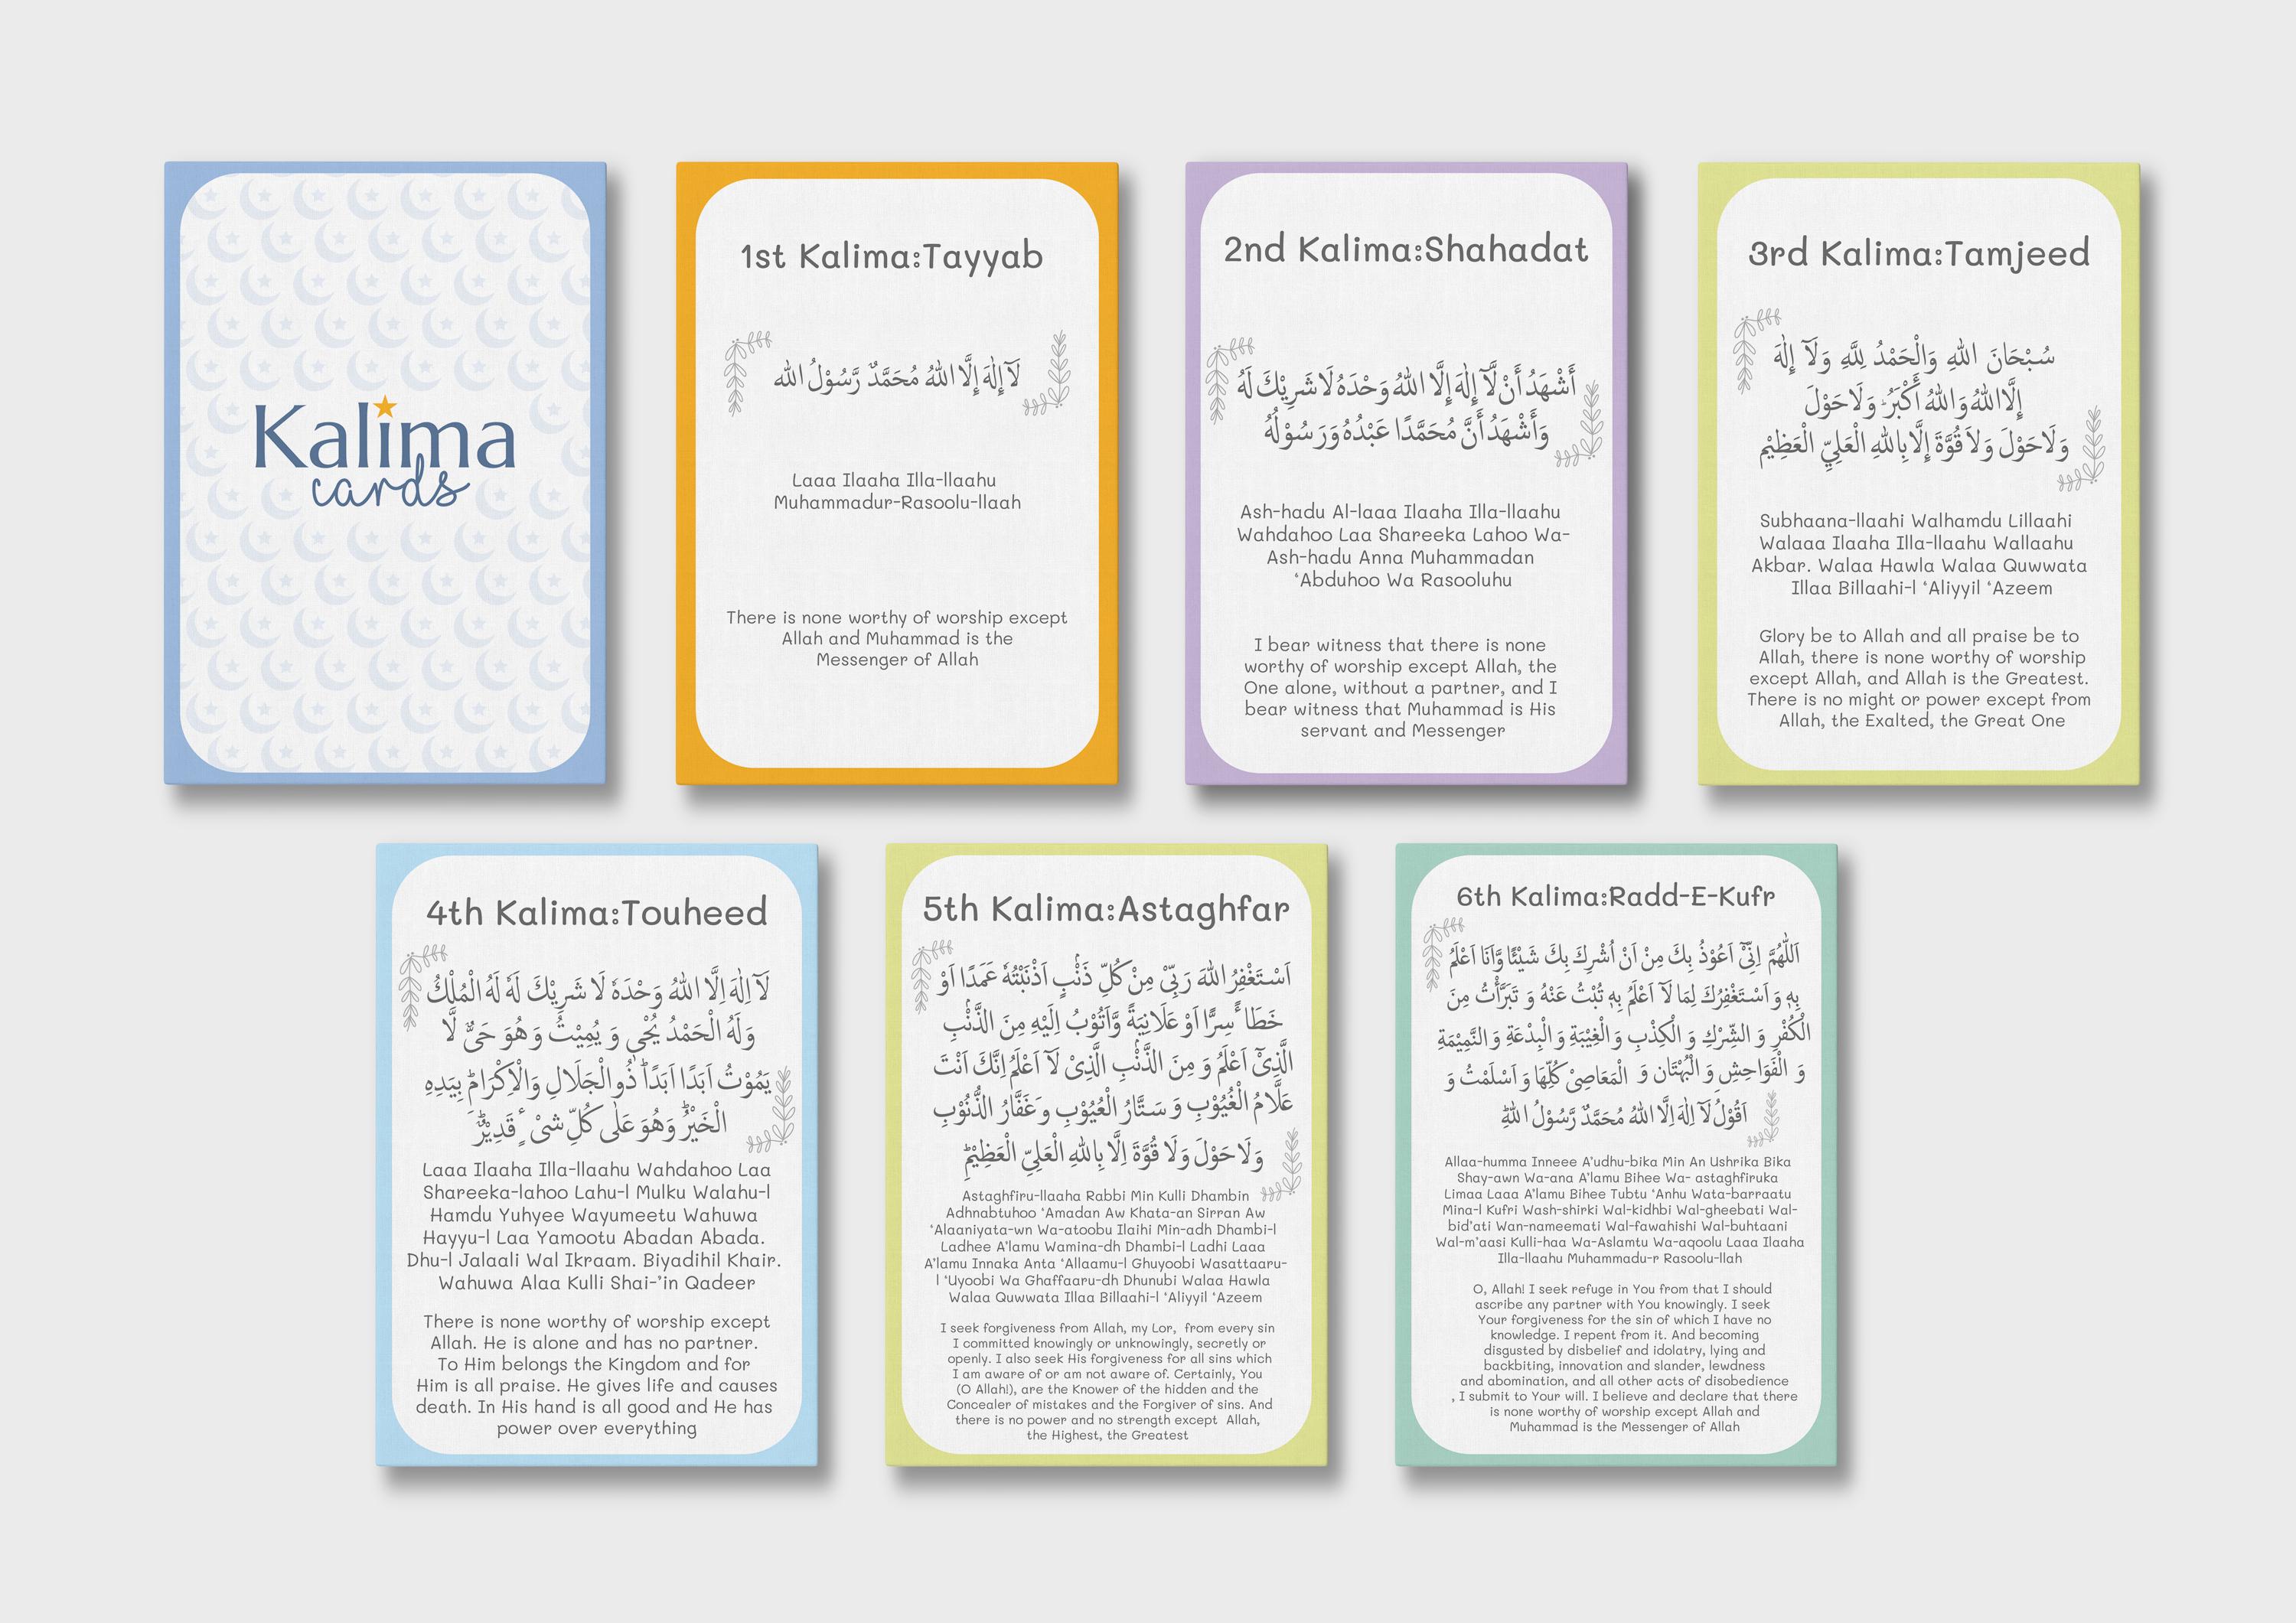 Kalima
cards
1st Kalima:Tayyab
لَآ إِلٰهَ إِلَّا اللهُ مُحَمَّدٌ رَّسُوْلُ الله
Laaa Ilaaha Illa-llaahu
Muhammadur-Rasoolu-llaah
There is none worthy of worship except
Allah and Muhammad is the
Messenger of Allah
2nd Kalima:Shahadat
أَشْهَدُ أَنْ لَّآ إِلٰهَ إِلَّا اللهُ وَحْدَهُ لَا شَرِيْكَ لَهُ
وَأَشْهَدُ أَنَّ مُحَمَّدًا عَبْدُهُ وَرَسُوْلُهُ
Ash-hadu Al-laaa Ilaaha Illa-llaahu
Wahdahoo Laa Shareeka Lahoo Wa-
Ash-hadu Anna Muhammadan
‘Abduhoo Wa Rasooluhu
I bear witness that there is none
worthy of worship except Allah, the
One alone, without a partner, and I
bear witness that Muhammad is His
servant and Messenger
3rd Kalima:Tamjeed
سُبْحَانَ اللهِ وَالْحَمْدُ لِلَّهِ وَلَآ إِلٰهَ
إِلَّا اللهُ وَاللهُ أَكْبَرُ ۚ وَلَا حَوْلَ
وَلَا حَوْلَ وَلَا قُوَّةَ إِلَّا بِاللهِ الْعَلِيِّ الْعَظِيْمِ
Subhaana-llaahi Walhamdu Lillaahi
Walaaa Ilaaha Illa-llaahu Wallaahu
Akbar. Walaa Hawla Walaa Quwwata
Illaa Billaahi-l ‘Aliyyil ‘Azeem
Glory be to Allah and all praise be to
Allah, there is none worthy of worship
except Allah, and Allah is the Greatest.
There is no might or power except from
Allah, the Exalted, the Great One
4th Kalima:Touheed
لَآ اِلٰهَ اِلَّا اللهُ وَحْدَهٗ لَا شَرِيْكَ لَهٗ لَهُ الْمُلْكُ
وَلَهُ الْحَمْدُ يُحْيٖ وَ يُمِيْتُ وَ هُوَ حَیٌّ لَّا
يَمُوْتُ اَبَدًا اَبَدًاؕ ذُو الْجَلَالِ وَالْاِكْرَامِؕ بِيَدِهِ
الْخَيْرُؕ وَهُوَ عَلٰى كُلِّ شیْ ءٍ قَدِيْرٌؕ
Laaa Ilaaha Illa-llaahu Wahdahoo Laa
Shareeka-lahoo Lahu-l Mulku Walahu-l
Hamdu Yuhyee Wayumeetu Wahuwa
Hayyu-l Laa Yamootu Abadan Abada.
Dhu-l Jalaali Wal Ikraam. Biyadihil Khair.
Wahuwa Alaa Kulli Shai-’in Qadeer
There is none worthy of worship except
Allah. He is alone and has no partner.
To Him belongs the Kingdom and for
Him is all praise. He gives life and causes
death. In His hand is all good and He has
power over everything
5th Kalima:Astaghfar
اَسْتَغْفِرُ اللهَ رَبِّیْ مِنْ كُلِّ ذَنْۢبٍ اَذْنَبْتُهٗ عَمَدًا اَوْ
خَطَا ًٔ سِرًّا اَوْ عَلَانِيَةً وَّاَتُوْبُ اِلَيْهِ مِنَ الذَّنْۢبِ
الَّذِیْٓ اَعْلَمُ وَ مِنَ الذَّنْۢبِ الَّذِیْ لَآ اَعْلَمُ اِنَّكَ اَنْتَ
عَلَّامُ الْغُيُوْبِ وَ سَتَّارُ الْعُيُوْبِ و َغَفَّارُ الذُّنُوْبِ
وَلَا حَوْلَ وَلَا قُوَّةَ اِلَّا بِاللهِ الْعَلِیِّ الْعَظِيْمِؕ
Astaghfiru-llaaha Rabbi Min Kulli Dhambin
Adhnabtuhoo ‘Amadan Aw Khata-an Sirran Aw
‘Alaaniyata-wn Wa-atoobu Ilaihi Min-adh Dhambi-l
Ladhee A’lamu Wamina-dh Dhambi-l Ladhi Laaa
A’lamu Innaka Anta ‘Allaamu-l Ghuyoobi Wasattaaru-
l ‘Uyoobi Wa Ghaffaaru-dh Dhunubi Walaa Hawla
Walaa Quwwata Illaa Billaahi-l ‘Aliyyil ‘Azeem
I seek forgiveness from Allah, my Lor,  from every sin
I committed knowingly or unknowingly, secretly or
openly. I also seek His forgiveness for all sins which
I am aware of or am not aware of. Certainly, You
(O Allah!), are the Knower of the hidden and the
Concealer of mistakes and the Forgiver of sins. And
there is no power and no strength except  Allah,
the Highest, the Greatest
6th Kalima:Radd-E-Kufr
اَللّٰهُمَّ اِنِّیْٓ اَعُوْذُ بِكَ مِنْ اَنْ اُشْرِكَ بِكَ شَيْئًا وَّاَنَا اَعْلَمُ
بِهٖ وَ اَسْتَغْفِرُكَ لِمَا لَآ اَعْلَمُ بِهٖ تُبْتُ عَنْهُ وَ تَبَرَّأْتُ مِنَ
الْكُفْرِ وَ الشِّرْكِ وَ الْكِذْبِ وَ الْغِيْبَةِ وَ الْبِدْعَةِ وَ النَّمِيْمَةِ
وَ الْفَوَاحِشِ وَ الْبُهْتَانِ وَ الْمَعَاصِیْ كُلِّهَا وَ اَسْلَمْتُ وَ
اَقُوْلُ لَآ اِلٰهَ اِلَّا اللهُ مُحَمَّدٌ رَّسُوْلُ اللهِؕ
Allaa-humma Inneee A’udhu-bika Min An Ushrika Bika
Shay-awn Wa-ana A’lamu Bihee Wa- astaghfiruka
Limaa Laaa A’lamu Bihee Tubtu ‘Anhu Wata-barraatu
Mina-l Kufri Wash-shirki Wal-kidhbi Wal-gheebati Wal-
bid'ati Wan-nameemati Wal-fawahishi Wal-buhtaani
Wal-m’aasi Kulli-haa Wa-Aslamtu Wa-aqoolu Laaa Ilaaha
Illa-llaahu Muhammadu-r Rasoolu-llah
O, Allah! I seek refuge in You from that I should
ascribe any partner with You knowingly. I seek
Your forgiveness for the sin of which I have no
knowledge. I repent from it. And becoming
disgusted by disbelief and idolatry, lying and
backbiting, innovation and slander, lewdness
and abomination, and all other acts of disobedience
, I submit to Your will. I believe and declare that there
is none worthy of worship except Allah and
Muhammad is the Messenger of Allah